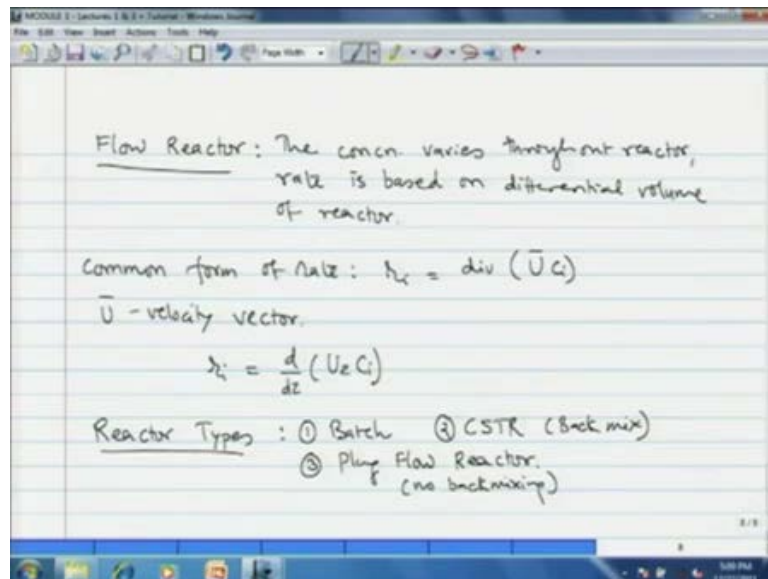 MODULE 1 - Lectures 1 & 2 + Tutorial - Windows Journal
File Edit View Insert Actions Tools Help
Page Width
Flow Reactor : The concn. varies throughout reactor,
rate is based on differential volume
of reactor.
Common form of rate : ri = div (Ū Ci)
Ū - velocity vector.
ri = d/dz (Uz Ci)
Reactor Types : ① Batch ② CSTR (Back mix)
③ Plug Flow Reactor.
(no backmixing)
8
5:09 PM